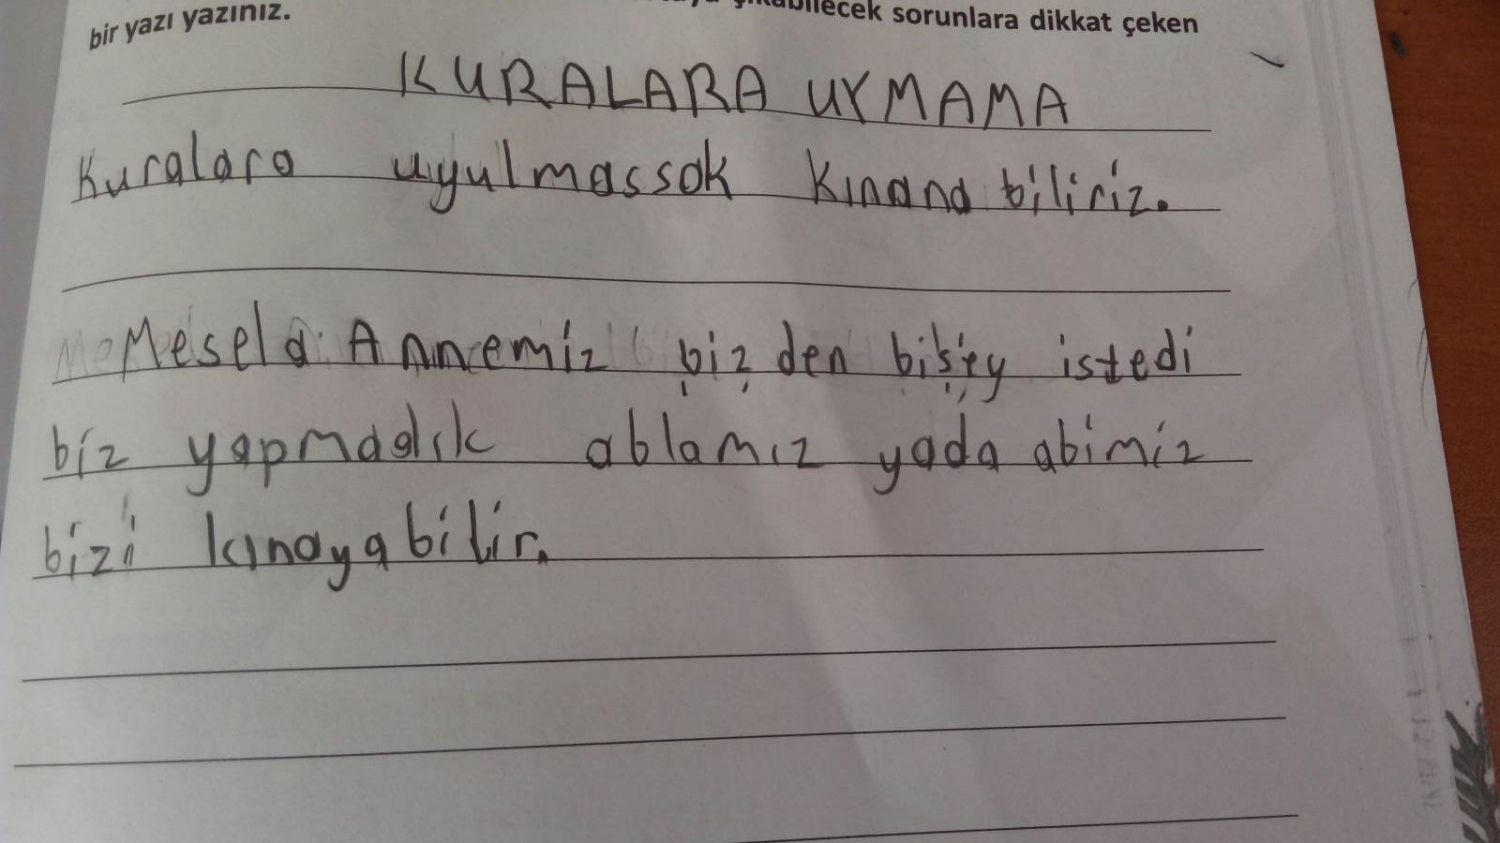 çıkabilecek sorunlara dikkat çeken
bir yazı yazınız.
KURALARA UYMAMA
Kuralara uyulmassak kınana biliriz.
Mesela Annemiz biz den bişey istedi
biz yapmadık ablamız yada abimiz
bizi kınayabilir.